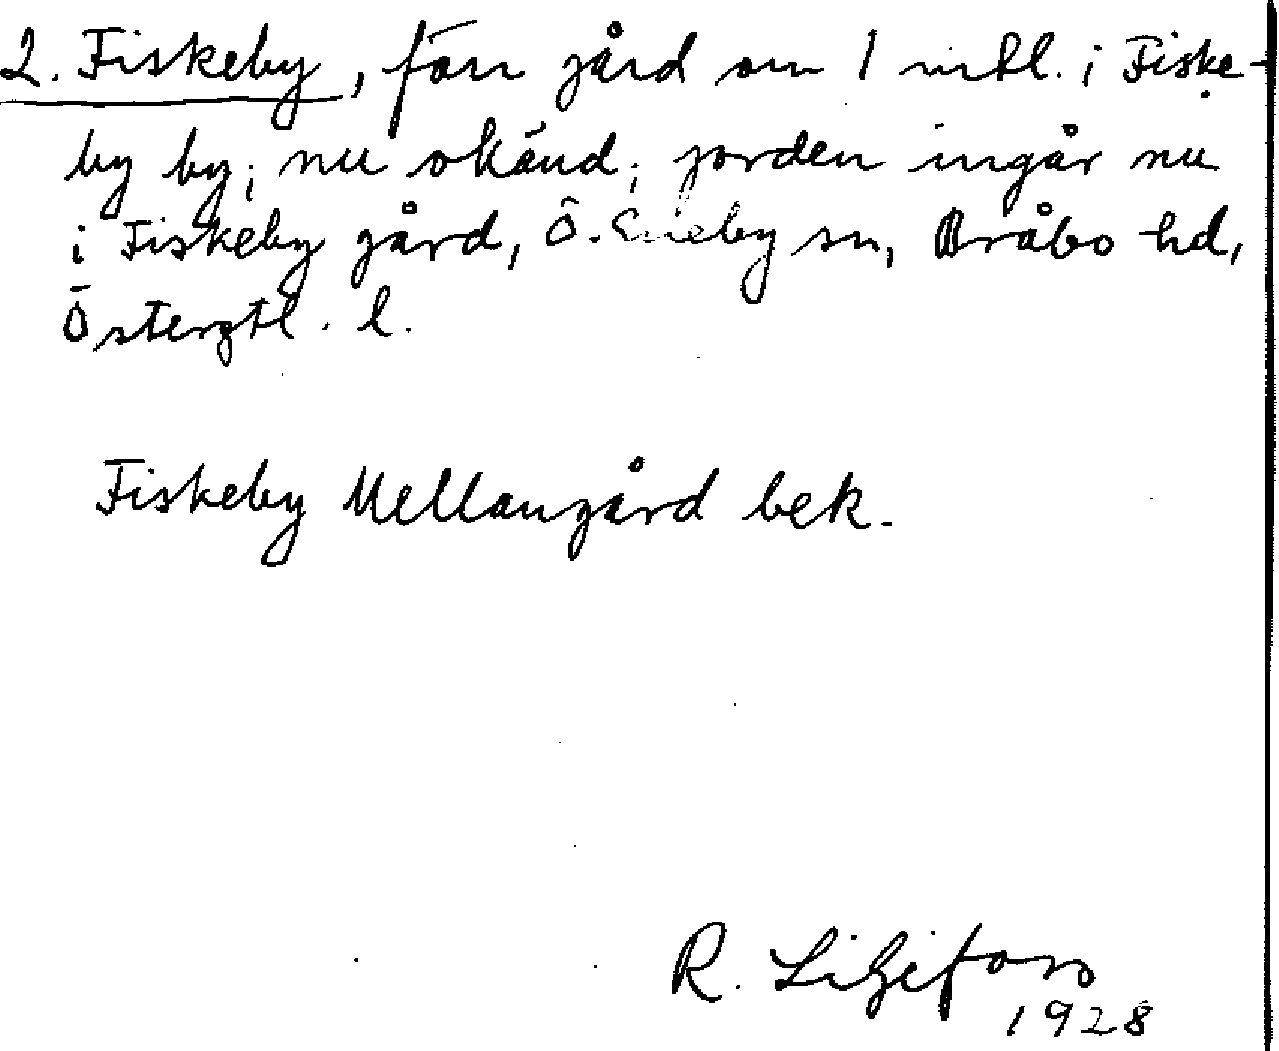 2. Fiskeby, förr gård om 1 mtl. i Fiske-
by by; nu okänd; jorden ingår nu
i Fiskeby gård, Ö. Eneby sn, Bråbo hd,
Östergtl. l.
Fiskeby Mellangård bek.
R. Liljefors
1928